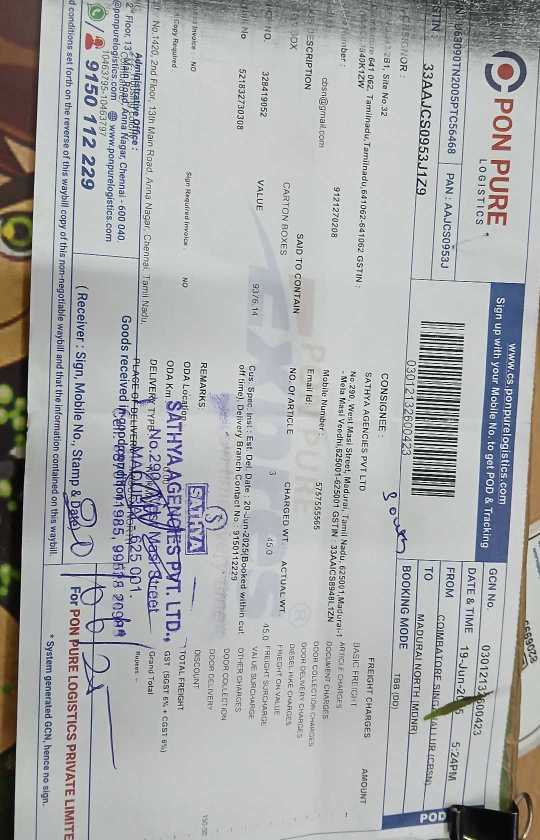 PON PURE
LOGISTICS
www.cs.ponpurelogistics.com
Sign up with your Mobile No. to get POD & Tracking
U63090TN2005PTC56468
PAN : AAJCS0953J
GSTIN :
33AAJCS0953J1Z9
030121132600423
GCN No.
DATE & TIME 19-Jun-2025 5:24PM
FROM
TO MADURAI NORTH (MDNR)
BOOKING MODE TBB (DD)
POD
32B1, Site No 32
641 062, Tamilnadu,Tamilnadu,641062-641062 GSTIN :
9121270208
cbsn@gmail.com
CONSIGNEE :
South
SATHYA AGENCIES PVT LTD
No 290, West Masi Street, Madurai, Tamil Nadu, 625001,Madurai-1
- Mela Masi Veedhi,625001-625001 GSTIN : 33AAICS8948L1ZN
Mobile Number : 5757555565
Email Id :
FREIGHT CHARGES AMOUNT
BASIC FREIGHT
ARTICLE CHARGES
DOCUMENT CHARGES
DOOR COLLECTION CHARGES
DOOR DELIVERY CHARGES
DIESEL HIKE CHARGES
FREIGHT ON VALUE
FREIGHT SURCHARGE
VALUE SURCHARGE
OTHER CHARGES
DOOR COLLECTION
DOOR DELIVERY
DISCOUNT
TOTAL FREIGHT
GST (SGST 6% + CGST 6%)
Grand Total
Rupees :
150.00
DESCRIPTION
SAID TO CONTAIN
NO. OF ARTICLE
CHARGED WT
ACTUAL WT
CARTON BOXES
3
45.0
45.0
328419052
VALUE
9376.14
521832730308
Cus. Spec. Inst : Est. Del. Date : 20-Jun-2025(Booked within cut
off time), Delivery Branch Contact No : 9150112229
Invoice NO
Sign Required Invoice : NO
Copy Required
REMARKS
ODA Location
ODA Km
DELIVERY TYPE
No.1420, 2nd Floor, 13th Main Road, Anna Nagar, Chennai, Tamil Nadu
SATHYA
SATHYA AGENCIES PVT. LTD.,
Administrative Office :
2nd Floor, 13th Main Road, Anna Nagar, Chennai - 600 040.
@ponpurelogistics.com www.ponpurelogistics.com
9150 112 229
Goods received in good condition
( Receiver : Sign, Mobile No., Stamp & Date )
For PON PURE LOGISTICS PRIVATE LIMITED
conditions set forth on the reverse of this waybill copy of this non-negotiable waybill and that the information contained on this waybill.
* System generated GCN, hence no sign.